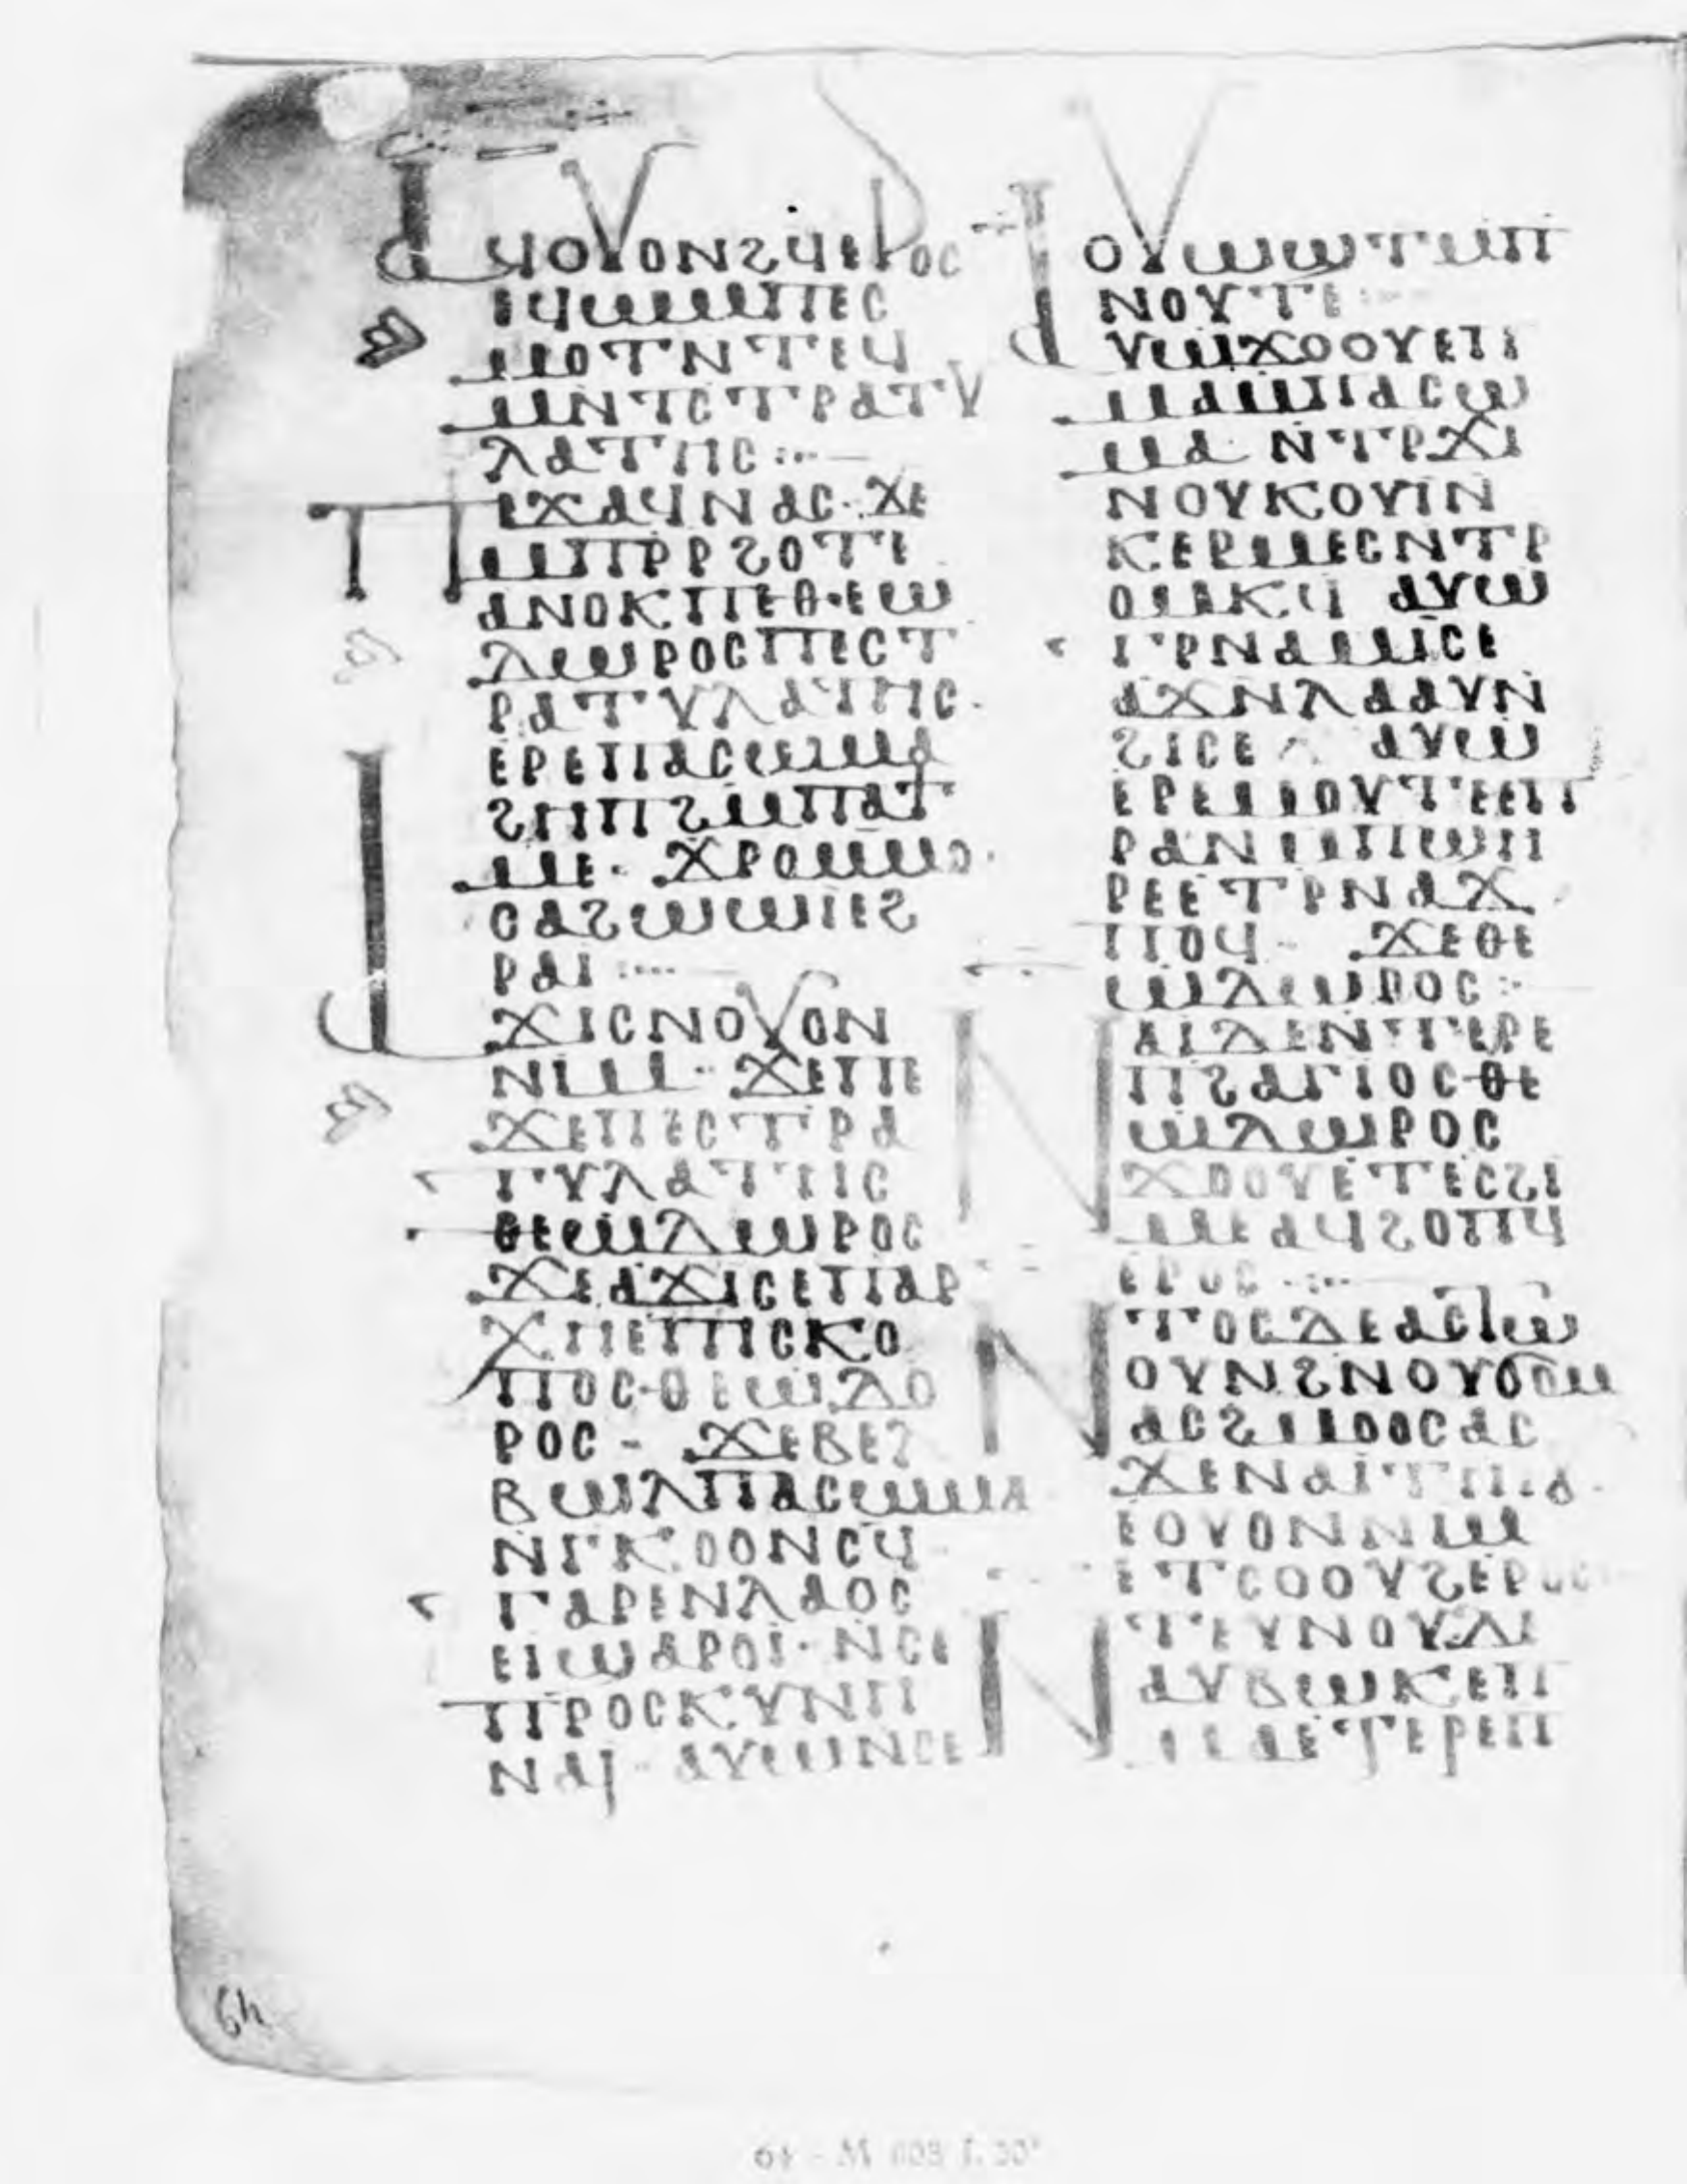 ⲁϥⲟⲩⲟⲛϩϥⲉⲣⲟⲥ
ⲉϥⲙⲙⲡⲉⲥ
ⲙⲟⲧⲛⲧⲉϥ
ⲙⲛⲧⲥⲧⲣⲁⲧⲩ
ⲗⲁⲧⲏⲥ:··—
ⲡⲉϫⲁϥⲛⲁⲥ· ϫⲉ
ⲙⲡⲣⲣϩⲟⲧⲉ
ⲁⲛⲟⲕⲡⲉⲑⲉⲱ
ⲇⲱⲣⲟⲥⲡⲉⲥⲧ
ⲣⲁⲧⲩⲗⲁⲧⲏⲥ·
ⲉⲣⲉⲡⲁⲥⲱⲙⲁ
ϩⲏⲡϩⲙⲡⲁⲧ
ⲙⲉ· ϫⲣⲟⲙⲙⲟ·
ⲥⲁϩⲱⲱⲓⲉϩ
ⲣⲁⲓ:··—
ⲁϫⲓⲥⲛⲟⲩⲟⲛ
ⲛⲓⲙ· ϫⲉⲡⲉ
ϫⲉⲡⲉⲥⲧⲣⲁ
ⲧⲩⲗⲁⲧⲏⲥ
ⲑⲉⲱⲇⲱⲣⲟⲥ
ϫⲉⲁϫⲓⲥⲉⲡⲁⲣ
ⲭⲏⲉⲡⲓⲥⲕⲟ
ⲡⲟⲥ·ⲑⲉⲱⲇⲟ
ⲣⲟⲥ- ϫⲉⲃⲉϩ
ⲃⲱⲗⲡⲁⲥⲱⲙⲁ
ⲛⲅⲕⲟⲟⲛⲥϥ
ⲧⲁⲣⲉⲛⲗⲁⲟⲥ
ⲉⲓϣⲁⲣⲟⲓ· ⲛⲥⲉ
ⲡⲣⲟⲥⲕⲩⲛⲏ
ⲛⲁⲓ· ⲁⲩⲱⲛⲥⲉ
ⲟⲩⲱϣⲧⲙⲡ
ⲛⲟⲩⲧⲉ
ⲁⲩⲱϫⲟⲟⲩⲉⲡ
ⲙⲁⲙⲡⲁⲥⲱ
ⲙⲁ· ⲛⲧⲣϫⲓ
ⲛⲟⲩⲕⲟⲩⲓⲛ
ⲕⲉⲣⲙⲉⲥⲛⲧⲣ
ⲟⲙⲕϥ ⲁⲩⲱ
ⲧⲣⲛⲁⲙⲓⲥⲉ
ⲁϫⲛⲗⲁⲁⲩⲛ
ϩⲓⲥⲉ ⲁⲩⲱ
ⲉⲣⲉⲙⲟⲩⲧⲉⲉⲡ
ⲣⲁⲛⲙⲡϣⲏ
ⲣⲉⲉⲧⲣⲛⲁϫ
ⲡⲟϥ- ϫⲉⲑⲉ
ⲱⲇⲱⲣⲟⲥ:-
ⲛⲁⲓⲇⲉⲛⲧⲉⲣⲉ
ⲡϩⲁⲅⲓⲟⲥⲑⲉ
ⲱⲇⲱⲣⲟⲥ
ϫⲟⲟⲩⲉⲧⲉⲥϩⲓ
ⲙⲉⲁϥϩⲟⲡϥ
ⲉⲣⲟⲥ·:··—
ⲛⲧⲟⲥⲇⲉⲁⲥⲱ
ⲟⲩⲛϩⲛⲟⲩϭⲟⲙ
ⲁⲥϩⲙⲟⲟⲥⲁⲥ
ϫⲉⲛⲁⲓⲧⲏⲣⲟⲩ
ⲉⲟⲩⲟⲛⲛⲓⲙ
ⲉⲧⲥⲟⲟⲩϩⲉⲣⲟⲥ
ⲛⲧⲉⲩⲛⲟⲩⲇⲉ
ⲁⲩⲃⲱⲕⲉⲡ
ⲙⲁⲉⲧⲉⲣⲉⲡ
64
64 - M 608 f. 30ᵛ